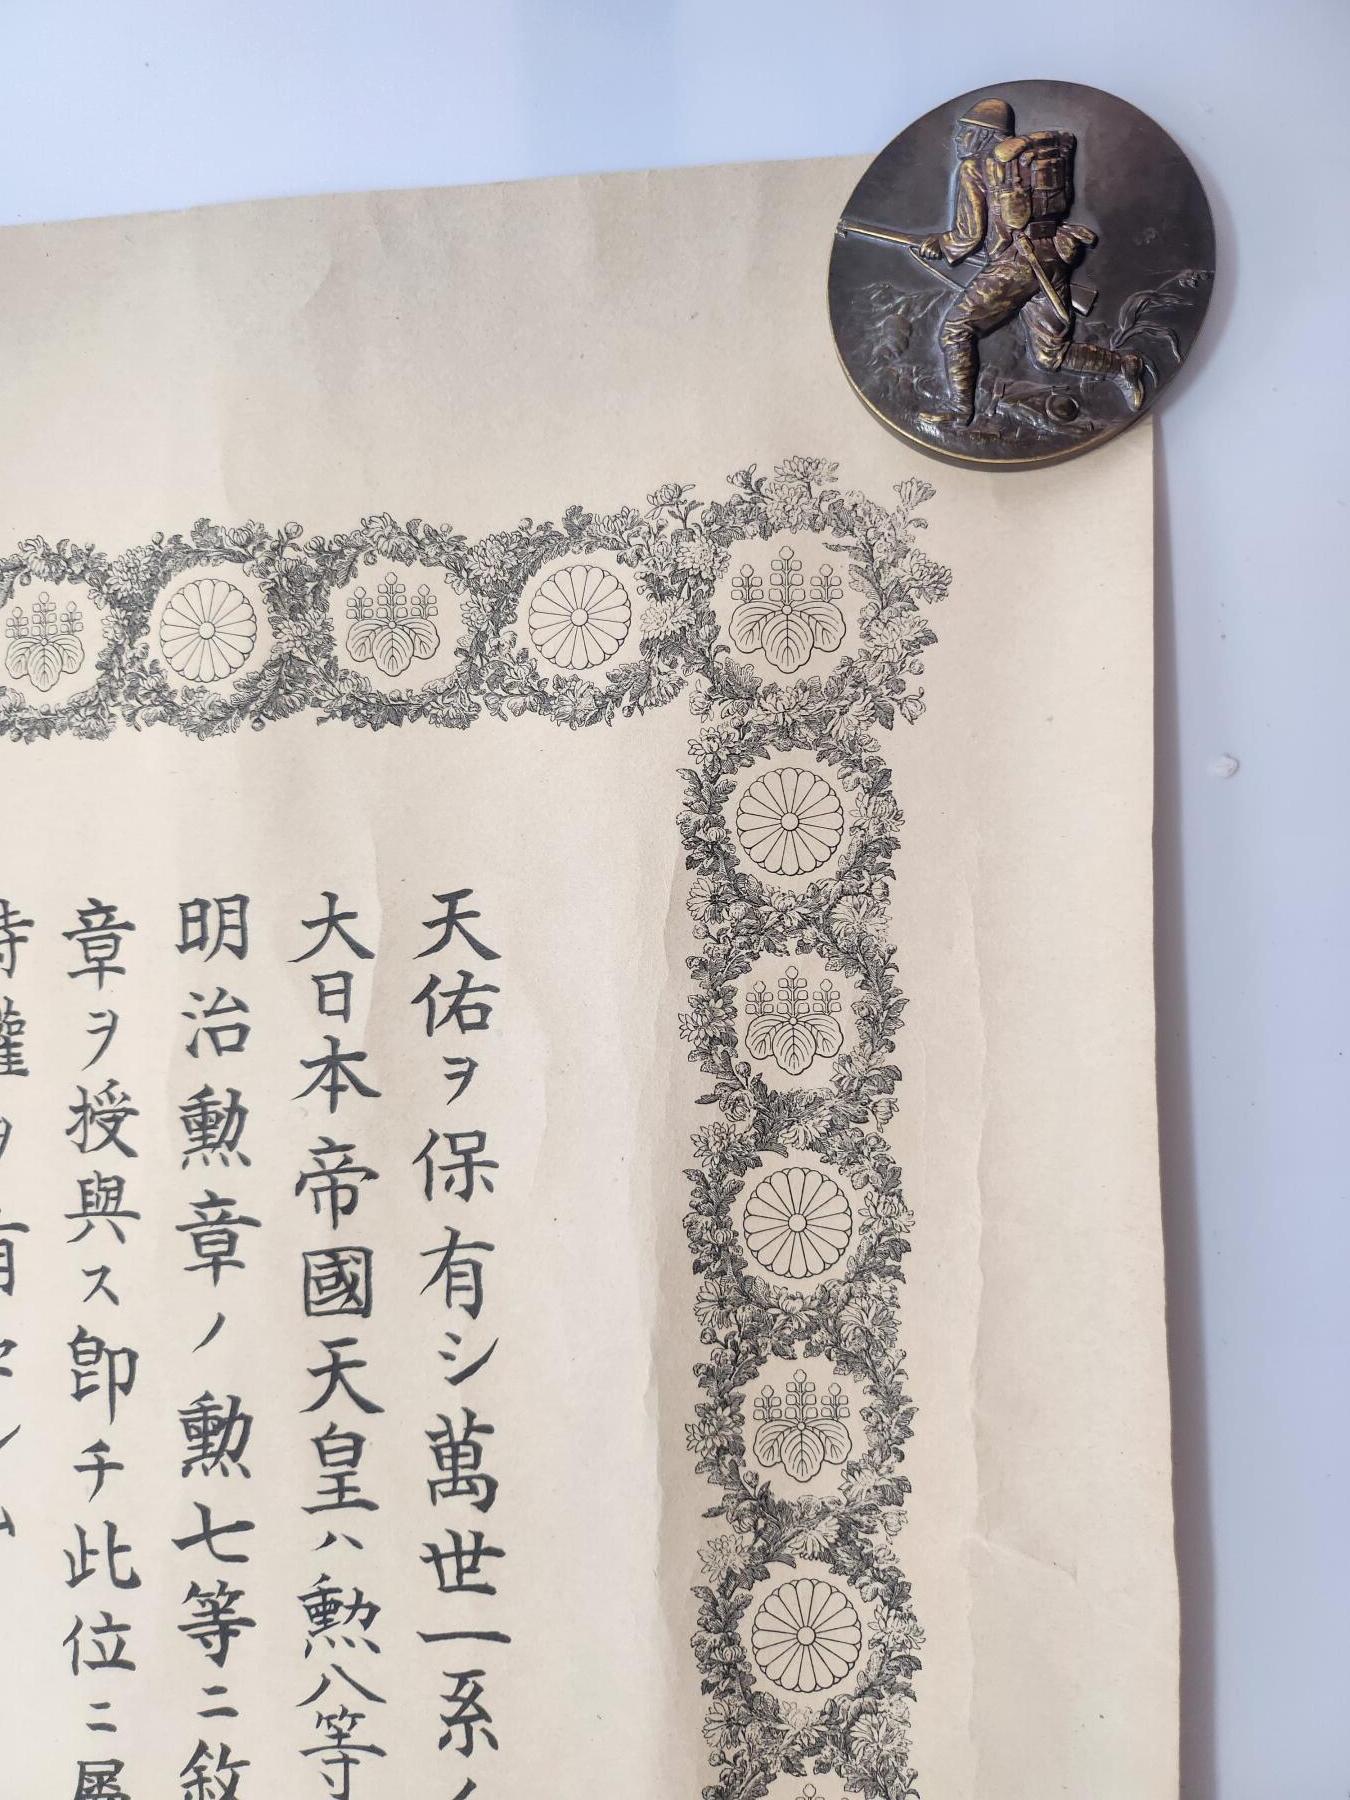 天佑ヲ保有シ萬世一系ノ
大日本帝國天皇ハ勲八等
明治勲章ノ勲七等ニ敘
章ヲ授與ス卽チ此位ニ屬
特權ヲ有セシム